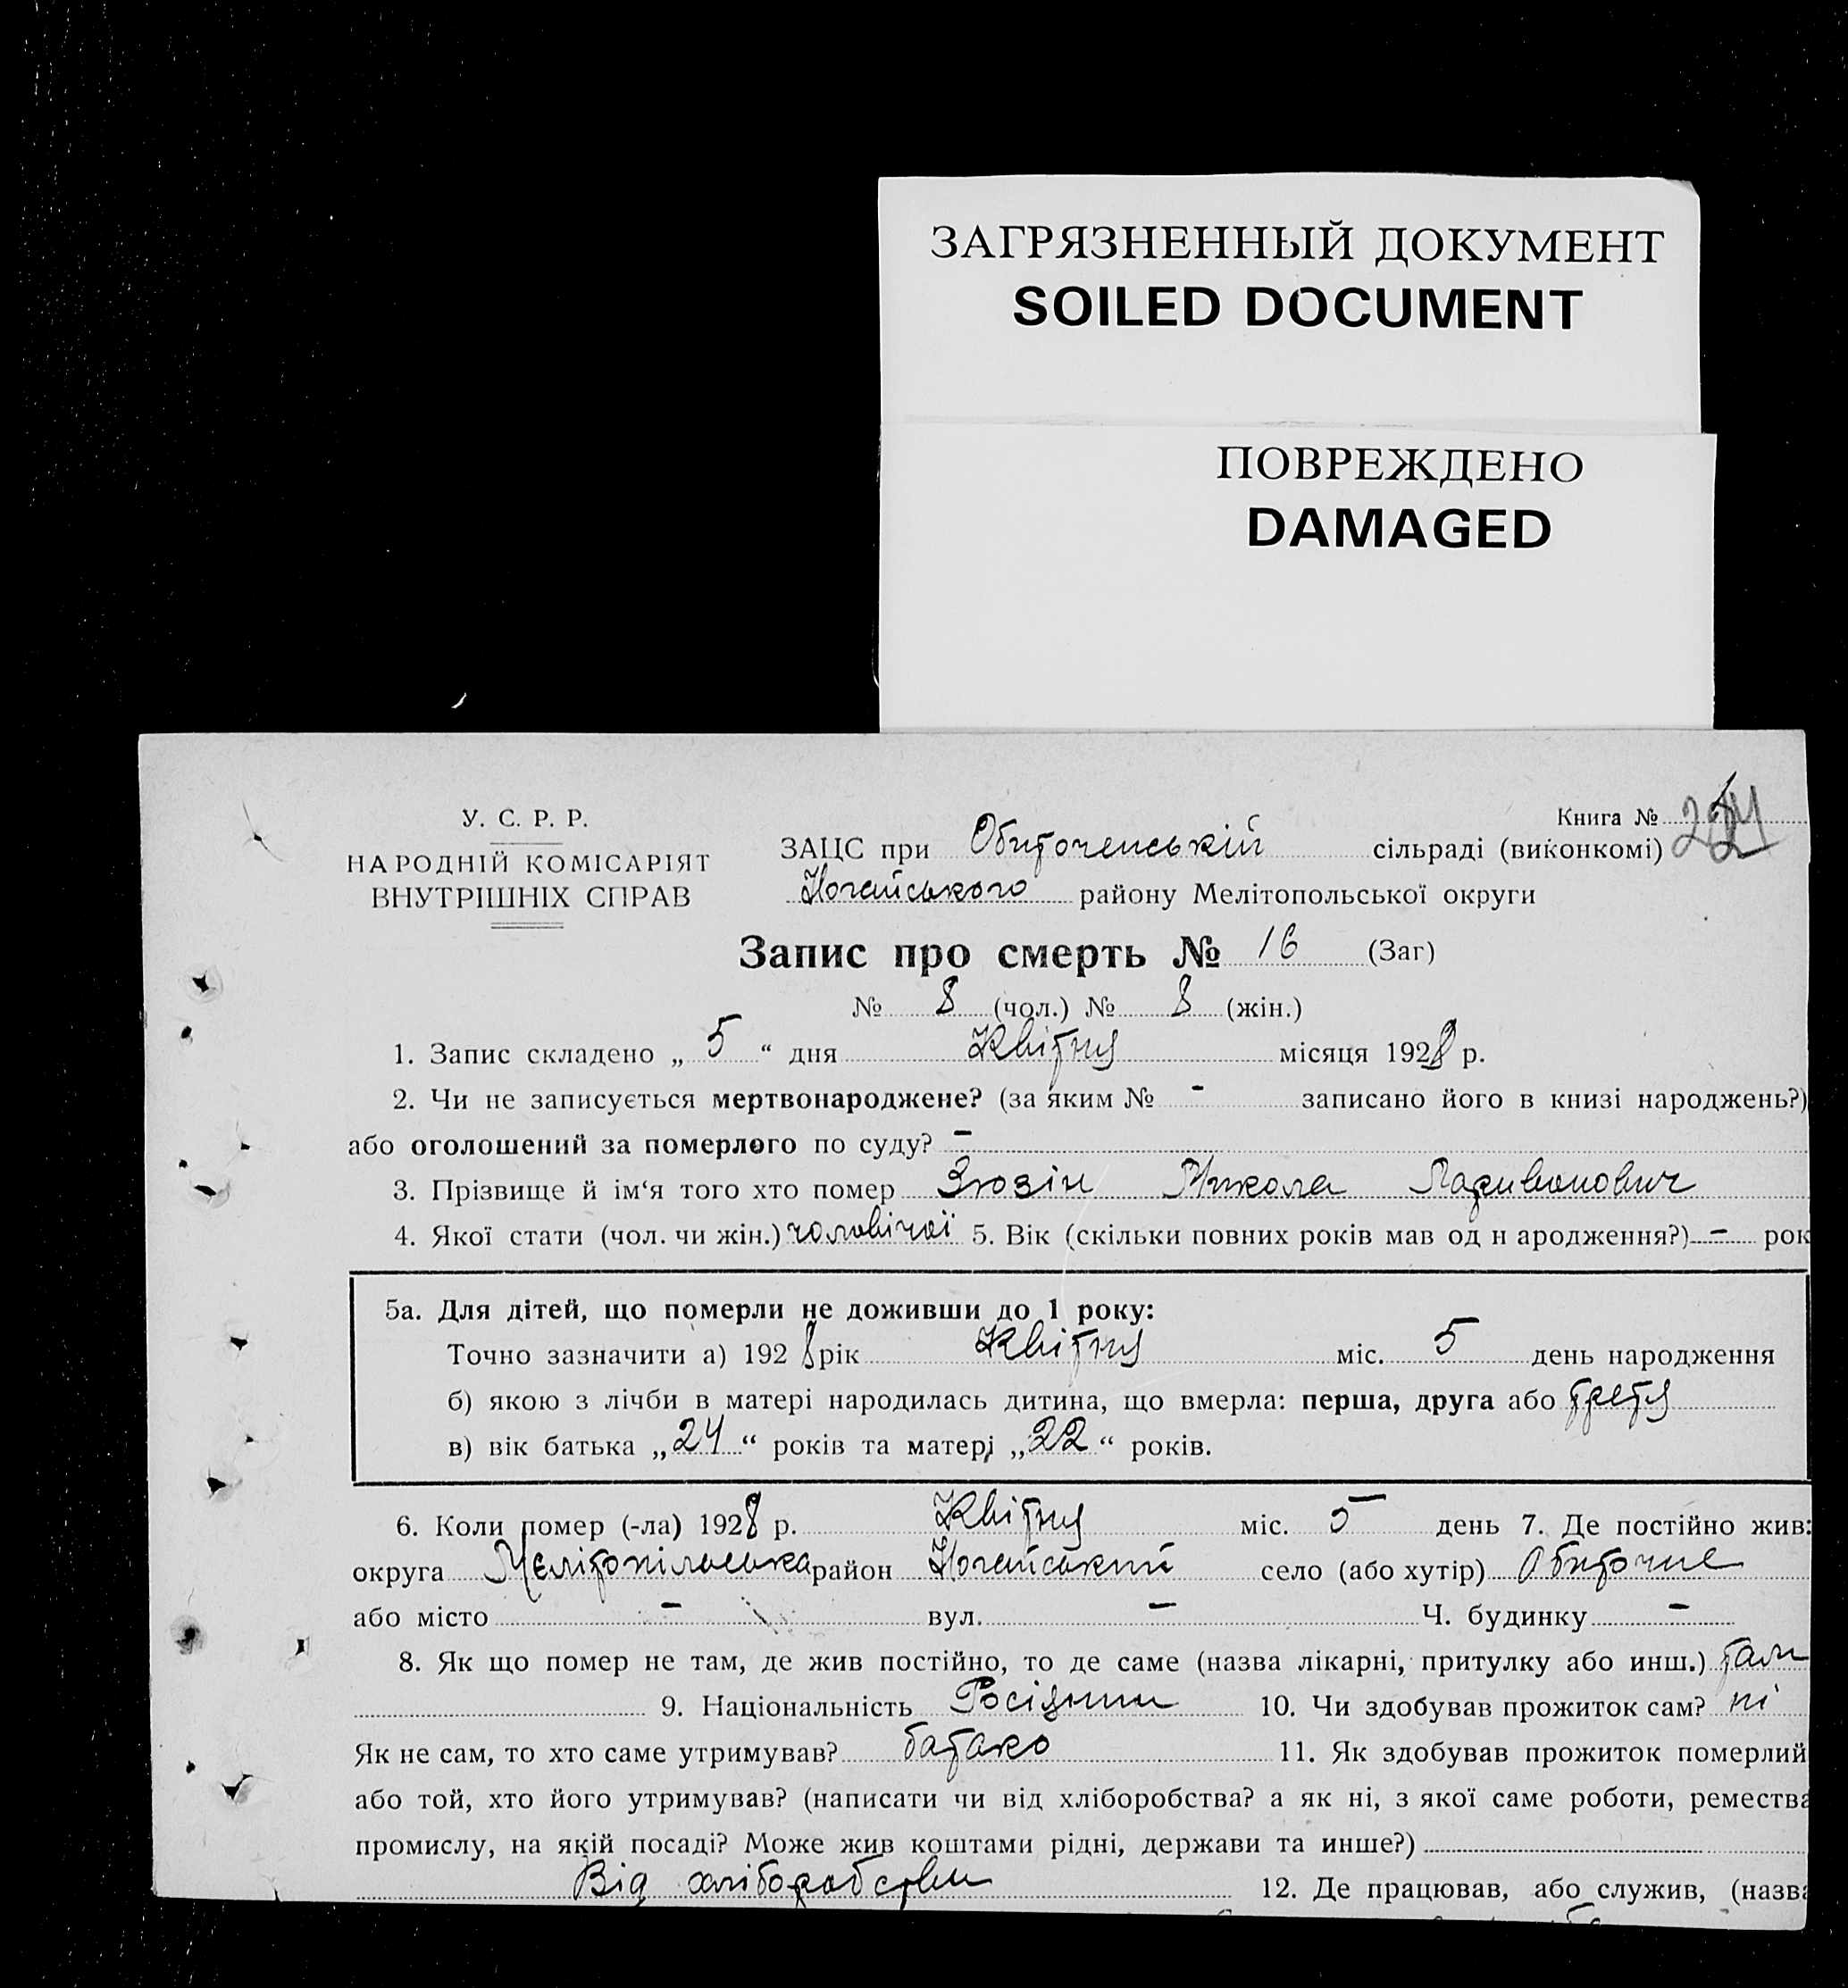 ЗАГРЯЗНЕННЫЙ ДОКУМЕНТ
SOILED DOCUMENT
ПОВРЕЖДЕНО
DAMAGED
У. С. Р. Р.
НАРОДНІЙ КОМІСАРІЯТ
ВНУТРІШНІХ СПРАВ
Книга №
ЗАЦС при Обиточенській сільраді (виконкомі)
Ногайського району Мелітопольської округи
Запис про смерть № 16 (Заг)
№ 8 (чол.) № 8 (жін.)
1. Запис складено „ 5 “ дня Квітня місяця 1928 р.
2. Чи не записується мертвонароджене? (за яким № - записано його в книзі народжень?)
або оголошений за померлого по суду? –
3. Прізвище й ім‘я того хто помер Зюзін Микола Ларивонович
4. Якої стати (чол. чи жін.) чоловічої 5. Вік (скільки повних років мав од н ародження?) – рок
5а. Для дітей, що померли не доживши до 1 року:
Точно зазначити а) 192 8 рік Квітня міс. 5 день народження
б) якою з лічби в матері народилась дитина, що вмерла: перша, друга або третя
в) вік батька „24“ років та матері „22“ років.
6. Коли помер (-ла) 1928 р. Квітня міс. 5 день 7. Де постійно жив:
округа Мелітопільська район Ногайський село (або хутір) Обиточне
або місто – вул. – Ч. будинку –
8. Як що помер не там, де жив постійно, то де саме (назва лікарні, притулку або инш.) там
9. Національність Росіянин 10. Чи здобував прожиток сам? ні
Як не сам, то хто саме утримував? батько 11. Як здобував прожиток померлий
або той, хто його утримував? (написати чи від хліборобства? а як ні, з якої саме роботи, ремества
промислу, на якій посаді? Може жив коштами рідні, держави та инше?)
Від хліборобства 12. Де працював, або служив, (назва